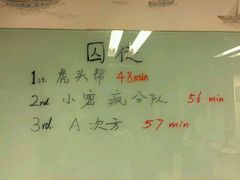 囚徒
1st 虎头帮 48min
2nd 小密疯分队 56 min
3rd A次方 57 min